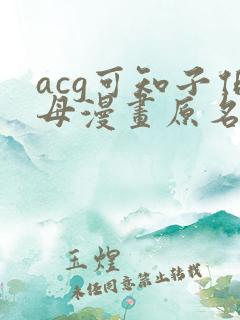 acg可知子伯
母漫畫原名
玉煌
未经同意禁止转载